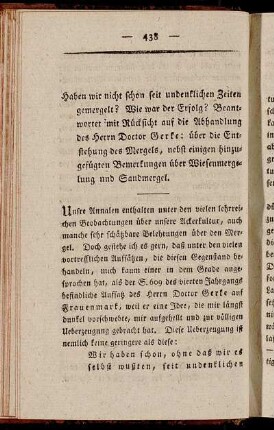 — 438 —
Haben wir nicht schon seit undenklichen Zeiten
gemergelt? Wie war der Erfolg? Beant-
wortet mit Rücksicht auf die Abhandlung
des Herrn Doctor Gerke: über die Ent-
stehung des Mergels, nebst einigen hinzu-
gefügten Bemerkungen über Wiesenmerge-
lung und Sandmergel.
Unsre Annalen enthalten unter den vielen lehrrei-
chen Beobachtungen über unsre Ackerkultur, auch
manche sehr schätzbare Belehrungen über den Mer-
gel. Doch gestehe ich es gern, daß unter den vielen
vortrefflichen Aufsätzen, die diesen Gegenstand be-
handeln, mich kaum einer in dem Grade ange-
sprochen hat, als der S. 609 des vierten Jahrgangs
befindliche Aufsatz des Herrn Doctor Gerke auf
Frauenmark, weil er eine Idee, die mir längst
dunkel vorschwebte, mir aufgehellt und zur völligen
Ueberzeugung gebracht hat. Diese Ueberzeugung ist
nemlich keine geringere als diese:
Wir haben schon, ohne das wir es
selbst wußten, seit undenklichen